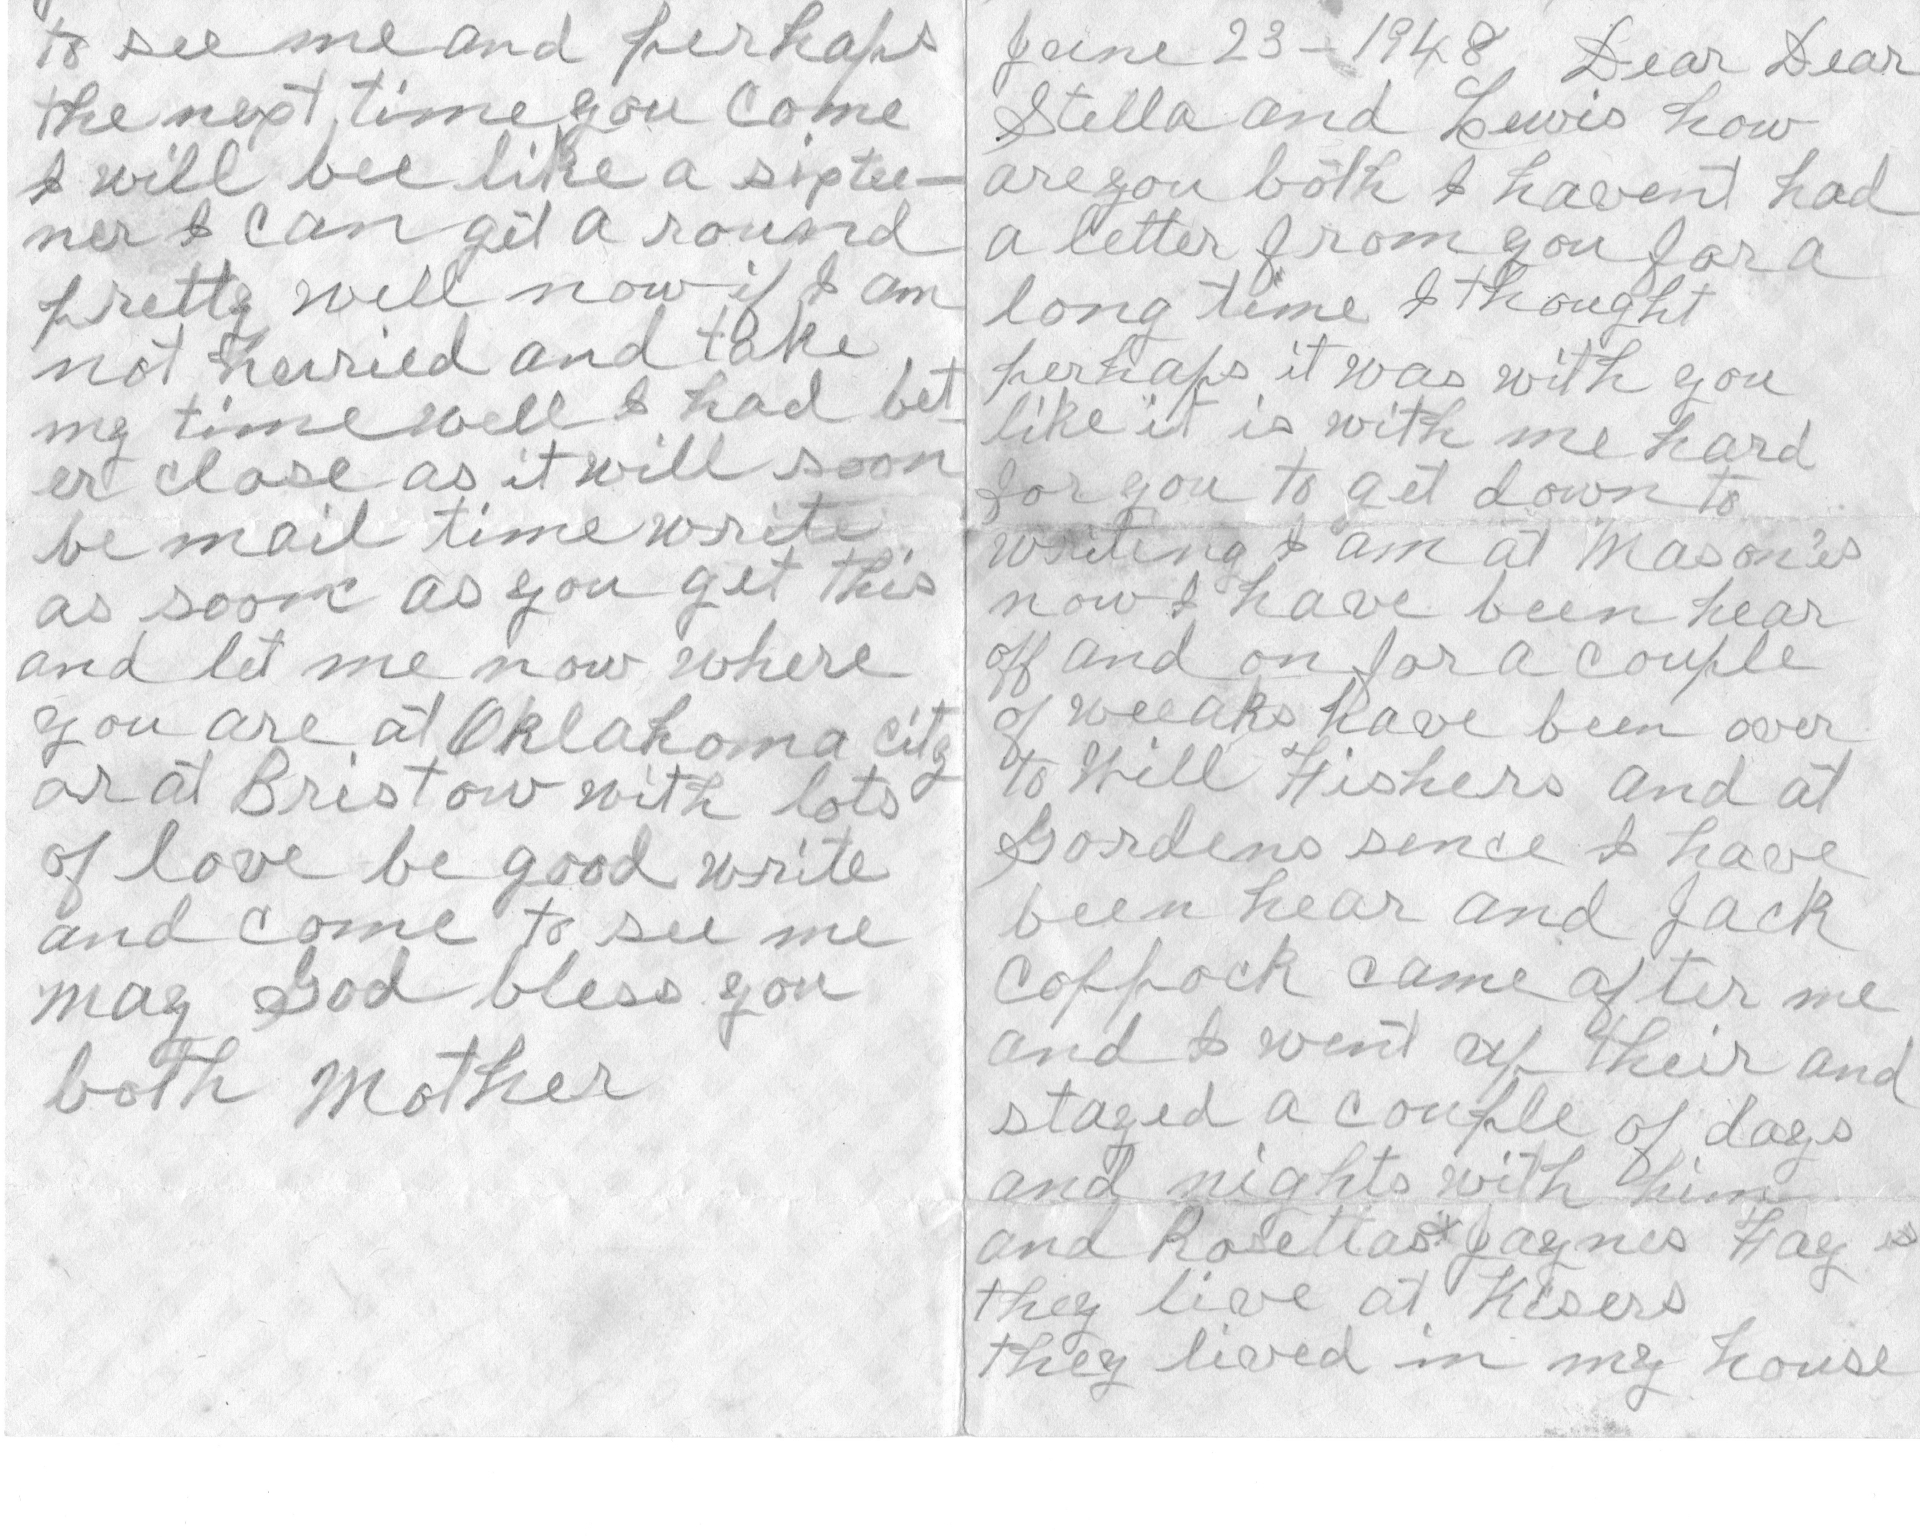 June 23 - 1948 Dear Dear
Stella and Lewis how
are you both I havent had
a letter from you for a
long time I thought
perhaps it was with you
like it is with me hard
for you to get down to
writing I am at Mason's
now I have been hear
off and on for a couple
of weeaks have been over
to Will Fishers and at
Gordens sence I have
been hear and Jack
Coppock came after me
and I went up their and
stayed a couple of days
and nights with him
and Rosettas Jaynes Fay is
they live at Kisers
they lived in my house
to see me and perhaps
the next time you come
I will bee like a sixtee-
ner I can get a round
pretty well now if I am
not hurried and take
my time well I had bet-
er close as it will soon
be mail time write
as soon as you get this
and let me now where
you are at Oklahoma city
or at Bristow with lots
of love be good write
and come to see me
may God bless you
both Mother